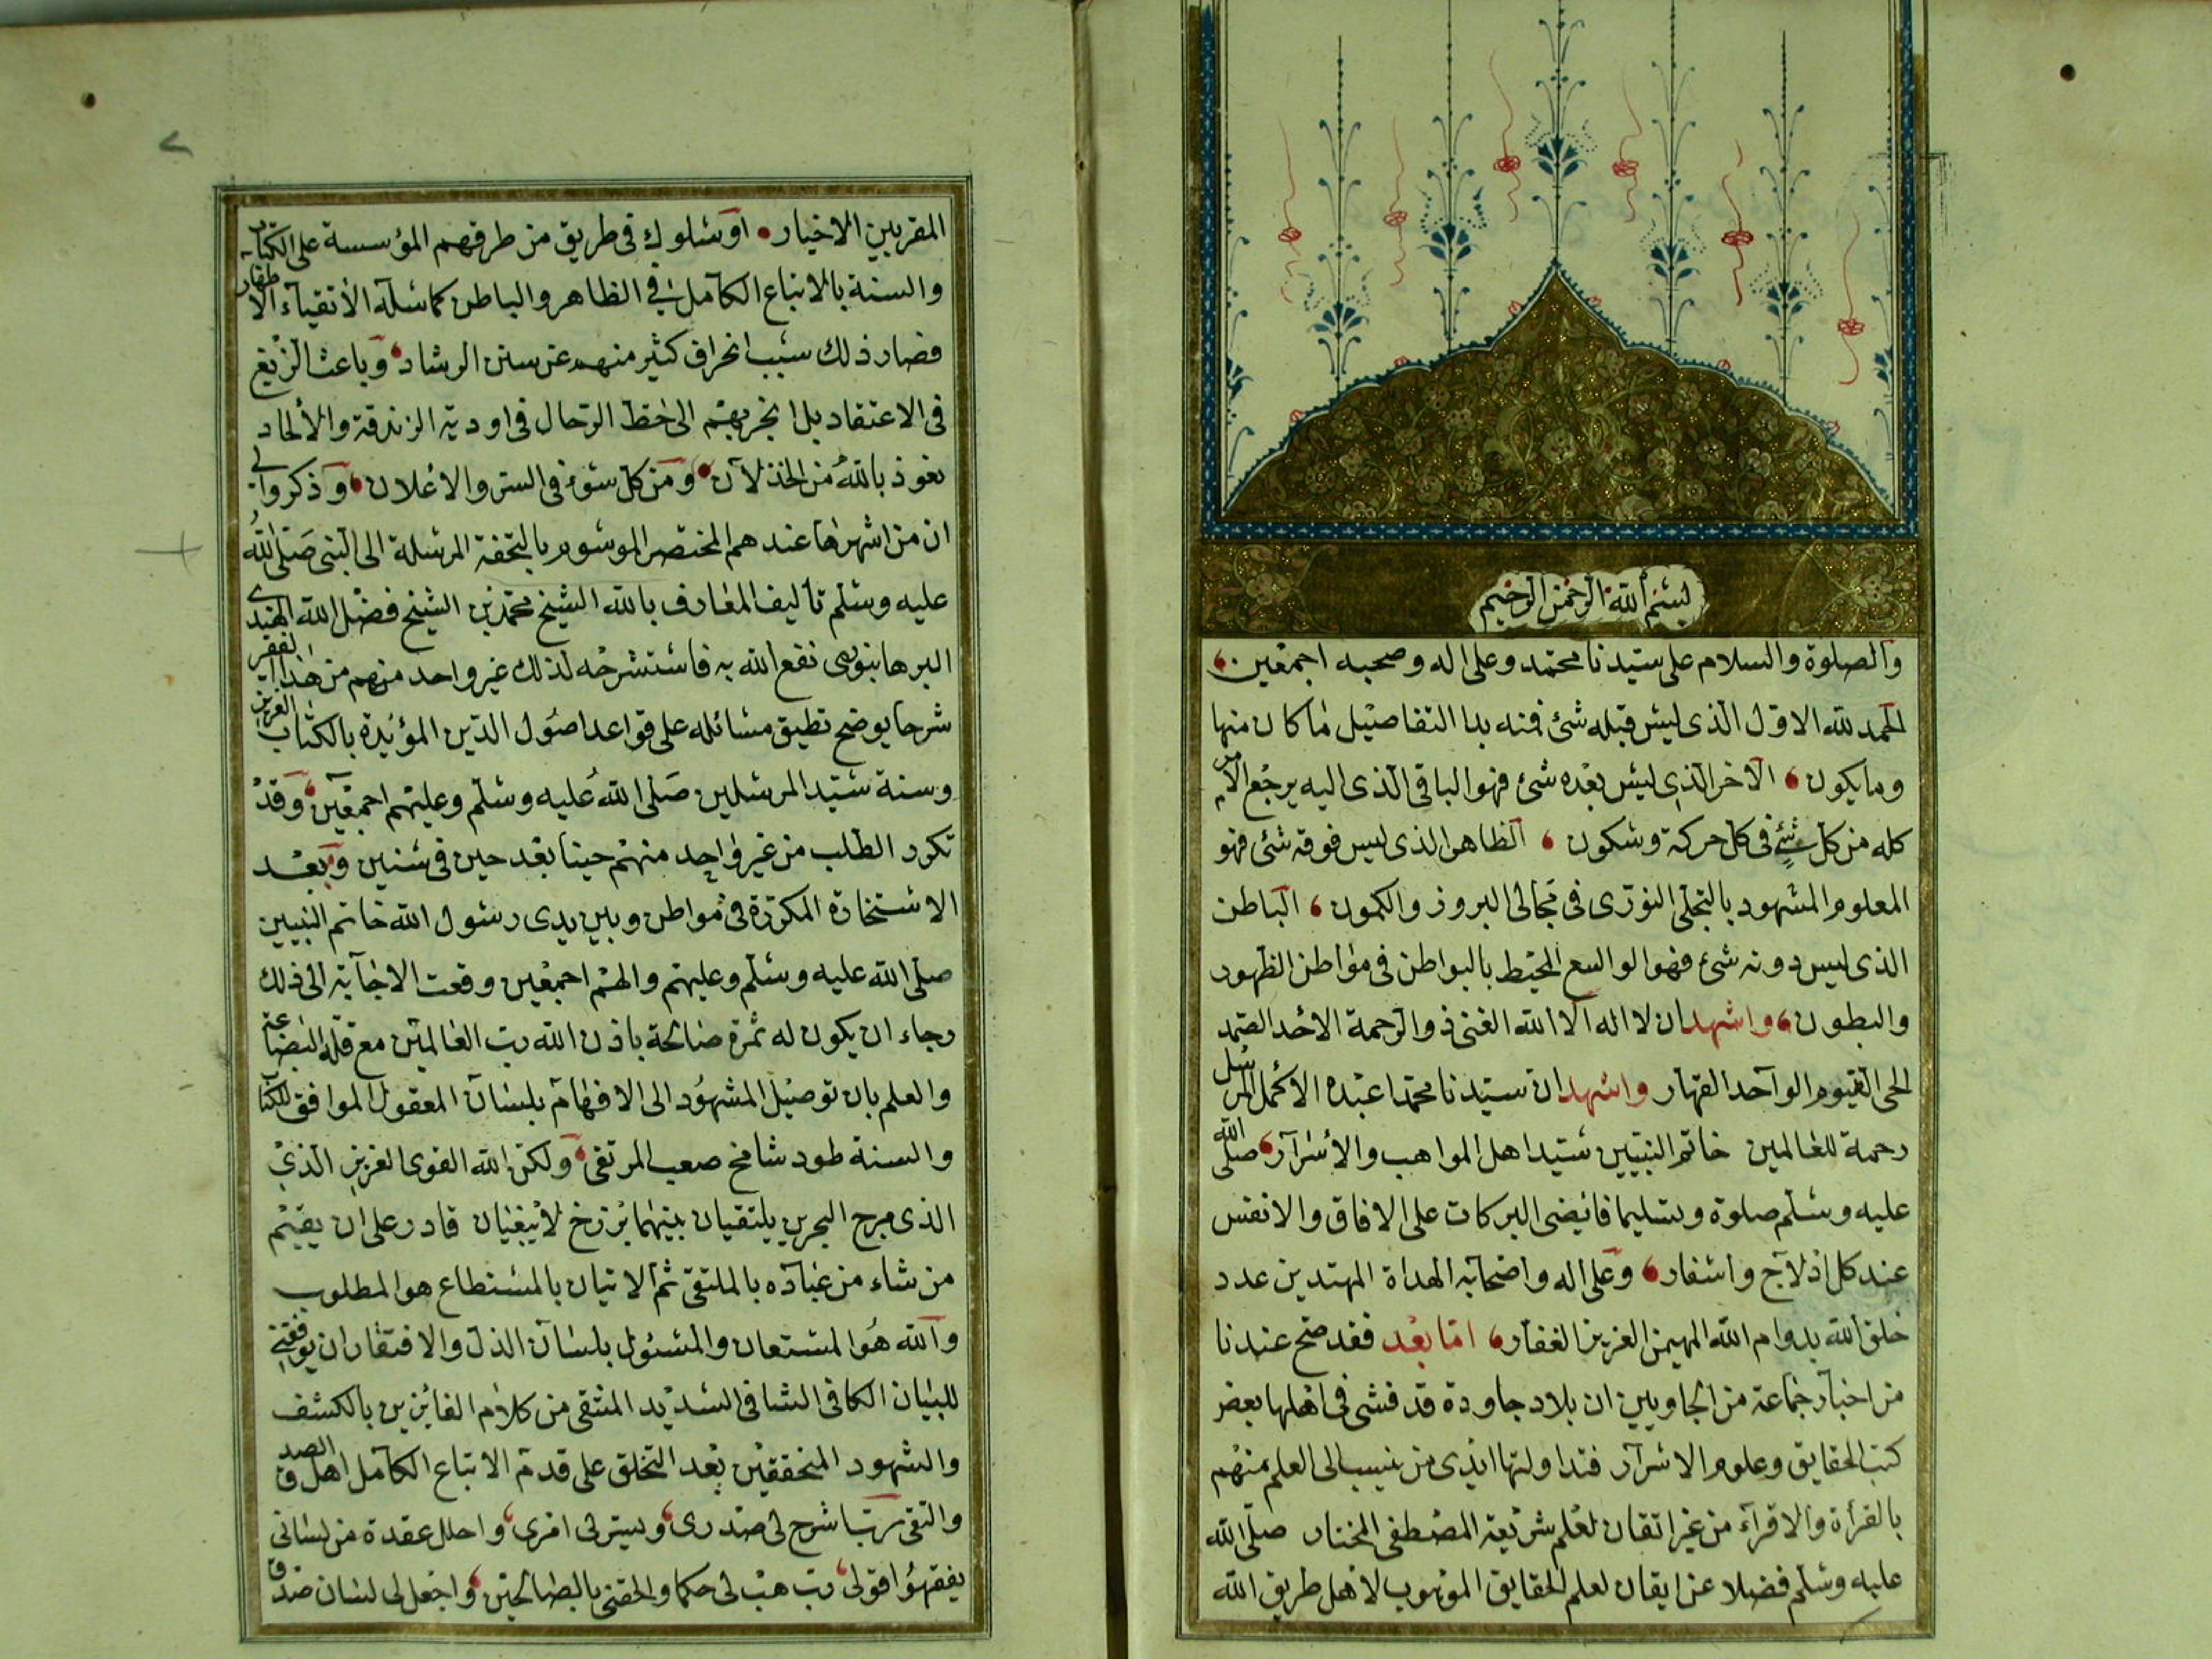 بسم الله الرحمن الرحيم
والصلوة والسلام على سيدنا محمد وعلى اله وصحبه اجمعين
الحمد لله الاول الذى ليس قبله شئ فمنه بدا التفاصيل ما كان منها
وما يكون الاخر الذى ليس بعده شئ فهو الباقى الذى اليه يرجع الامر
كله من كل شئ فى كل حركة وسكون الظاهر الذى ليس فوقه شئ فهو
المعلوم المشهود بالتجلى النورى فى مجالى البروز والكمون الباطن
الذى ليس دونه شئ فهو الواسع المحيط بالبواطن فى مواطن الظهور
والبطون واشهد ان لا اله الا الله الغنى ذو الرحمة الاحد الصمد
الحى القيوم الواحد القهار واشهد ان سيدنا محمدا عبده الاكمل المرسل
رحمة للعالمين خاتم النبيين سيد اهل المواهب والاسرار صلى الله
عليه وسلم صلوة وتسليما فائضى البركات على الافاق والانفس
عند كل ادلاج واسفار وعلى اله واصحابه الهداة المهتدين عدد
خلق الله بدوام الله المهيمن العزيز الغفار اما بعد فقد صح عندنا
من اخبار جماعة من الجاويين ان بلاد جاوة قد فشى فى اهلها بعض
كتب الحقايق وعلوم الاسرار فتداولتها ايدى من ينسب الى العلم منهم
بالقرأة والاقرآء من غير اتقان لعلم شريعة المصطفى المختار صلى الله
عليه وسلم فضلا عن ايقان لعلم الحقايق الموهوب لاهل طريق الله
المقربين الاخيار او سلوك فى طريق من طرقهم المؤسسة على الكتاب
والسنة بالاتباع الكامل فى الظاهر والباطن كما سلكه الاتقياء الا
فصار ذلك سبب انحراف كثير منهم عن سنن الرشاد وباعث الزيغ
فى الاعتقاد بل انجر بهم الى حط الرحال فى اودية الزندقة والألحاد
نعوذ بالله من الخذلان ومن كل سوء فى السر والاعلان وذكروا لى
ان من اشهرها عندهم المختصر الموسوم بالتحفة المرسلة الى النبى صلى الله
عليه وسلم تأليف العارف بالله الشيخ محمد بن الشيخ فضل الله الهندى
البرهانبورى نفع الله به فاستشرحه لذلك غير واحد منهم من هذا الفقير
شرحا يوضح تطبيق مسائله على قواعد اصول الدين المؤيدة بالكتاب العزيز
وسنة سيد المرسلين صلى الله عليه وسلم وعليهم اجمعين وقد
تكرر الطلب من غير واحد منهم حينا بعد حين فى سنين وبعد
الاستخارة المكررة فى مواطن وبين يدى رسول الله خاتم النبيين
صلى الله عليه وسلم وعليهم والهم اجمعين وقعت الاجابة الى ذلك
رجاء ان يكون له ثمرة صالحة باذن الله رب العالمين مع قلة البضاعة
والعلم بان توصيل المشهود الى الافهام بلسان المعقول الموافق للكتاب
والسنة طود شامخ صعب المرتقى ولكن الله القوى العزيز الذى
الذى مرج البحرين يلتقيان بينهما برزخ لا يبغيان قادر على ان يقيم
من شاء من عباده بالملتقى ثم الاتيان بالمستطاع هو المطلوب
والله هو المستعان والمسئول بلسان الذل والافتقار ان يوفقنى
للبيان الكافى الشافى السديد المنتقى من كلام الفائزين بالكشف
والشهود المتحققين بعد التخلق على قدم الاتباع الكامل اهل الصدق
والتقى رب اشرح لى صدرى ويسر لى امرى واحلل عقدة من لسانى
يفقهوا قولى رب هب لى حكما والحقنى بالصالحين واجعل لى لسان صدق